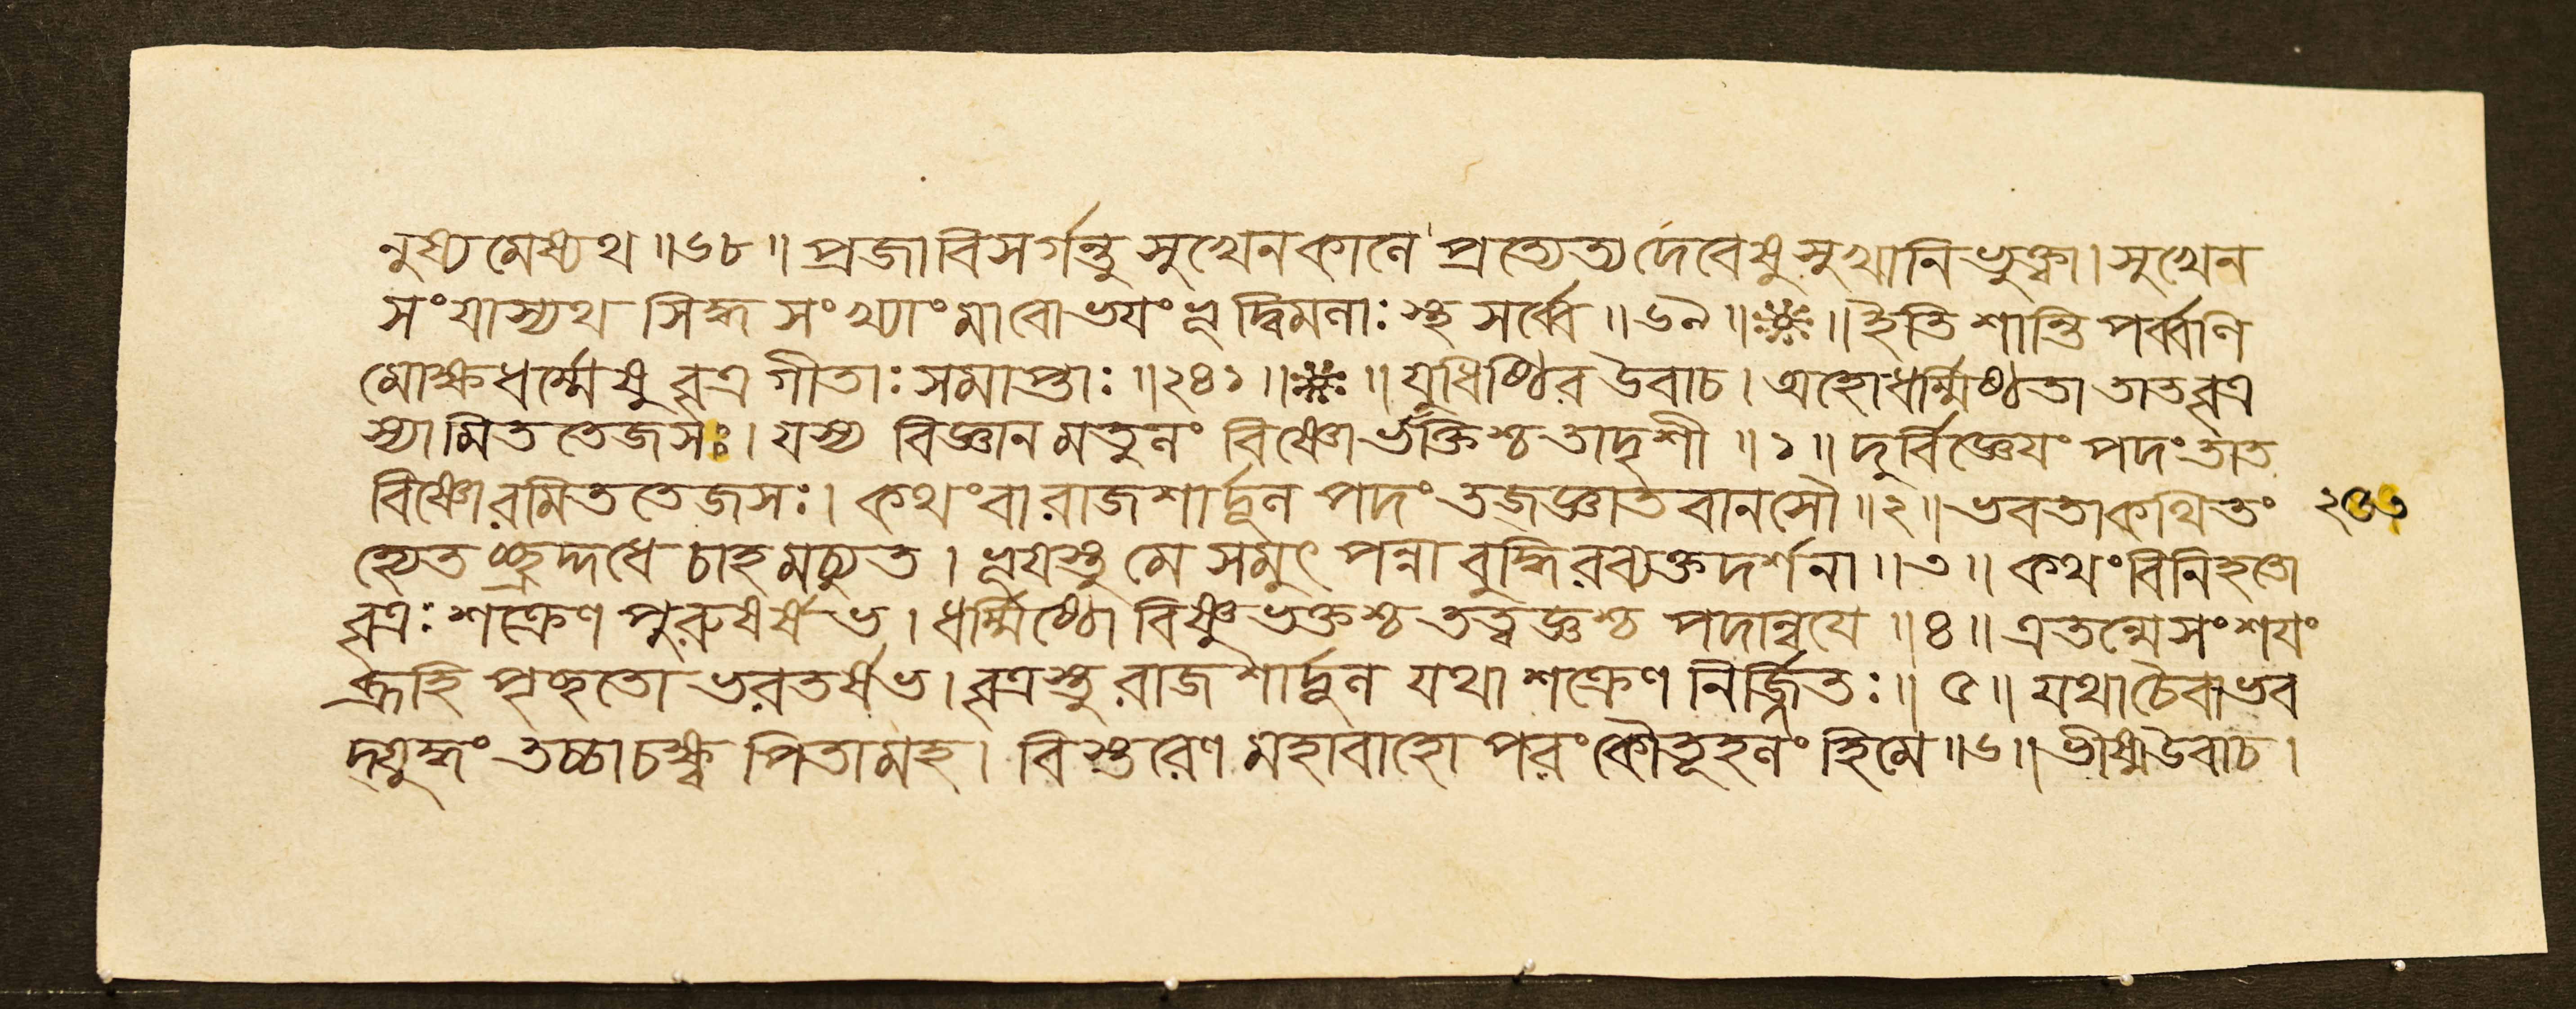 নুষ্যমেষ্যথ ॥৬৮॥ প্রজাবিসর্গন্তু সুখেনকালে প্রত্যেত্যদেবেষু সুখানি ভুক্ত্বা। সুখেন
সংযাস্যথ সিদ্ধসংখ্যাং মাবোভযং ভূদ্বিমনাঃ স্থ সর্ব্বে ॥৬৯॥ ॥ ইতি শান্তিপর্ব্বণি
মোক্ষধর্ম্মেষু বৃত্রগীতাঃ সমাপ্তাঃ ॥২৪১॥ ॥ যুধিষ্ঠির উবাচ। অহোধর্ম্মিষ্ঠতা তাত বৃত্র
স্যামিততেজসঃ। যস্য বিজ্ঞানমতুলং বিষ্ণোর্ভক্তিশ্চ তাদৃশী ॥১॥ দুর্বিজ্ঞেযং পদং তাত
বিষ্ণোরমিততেজসঃ। কথং বা রাজশার্দ্দূল পদং তজ্জ্ঞাতবানসৌ ॥২॥ ভবতাকথিতং ২৫৩
হ্যেতচ্ছ্রদ্দধে চাহমচ্যুত। ভূযস্তু মে সমুৎপন্না বুদ্ধিরব্যক্তদর্শনা ॥৩॥ কথং বিনিহতো
বৃত্রঃ শক্রেণ পুরুষর্ষভ। ধর্ম্মিষ্ঠো বিষ্ণুভক্তশ্চ তত্ত্বজ্ঞশ্চ পদান্বযে ॥৪॥ এতন্মেসংশযং
ব্রূহি পৃচ্ছতো ভরতর্ষভ। বৃত্রস্তু রাজশার্দ্দূল যথা শক্রেণ নির্জ্জিতঃ॥ ৫॥ যথাচৈবাভব
দ্যুদ্ধং তচ্চাচক্ষ্ব পিতামহ। বিস্তরেণ মহাবাহো পরং কৌতূহলং হিমে ॥৬॥ ভীষ্ম উবাচ।